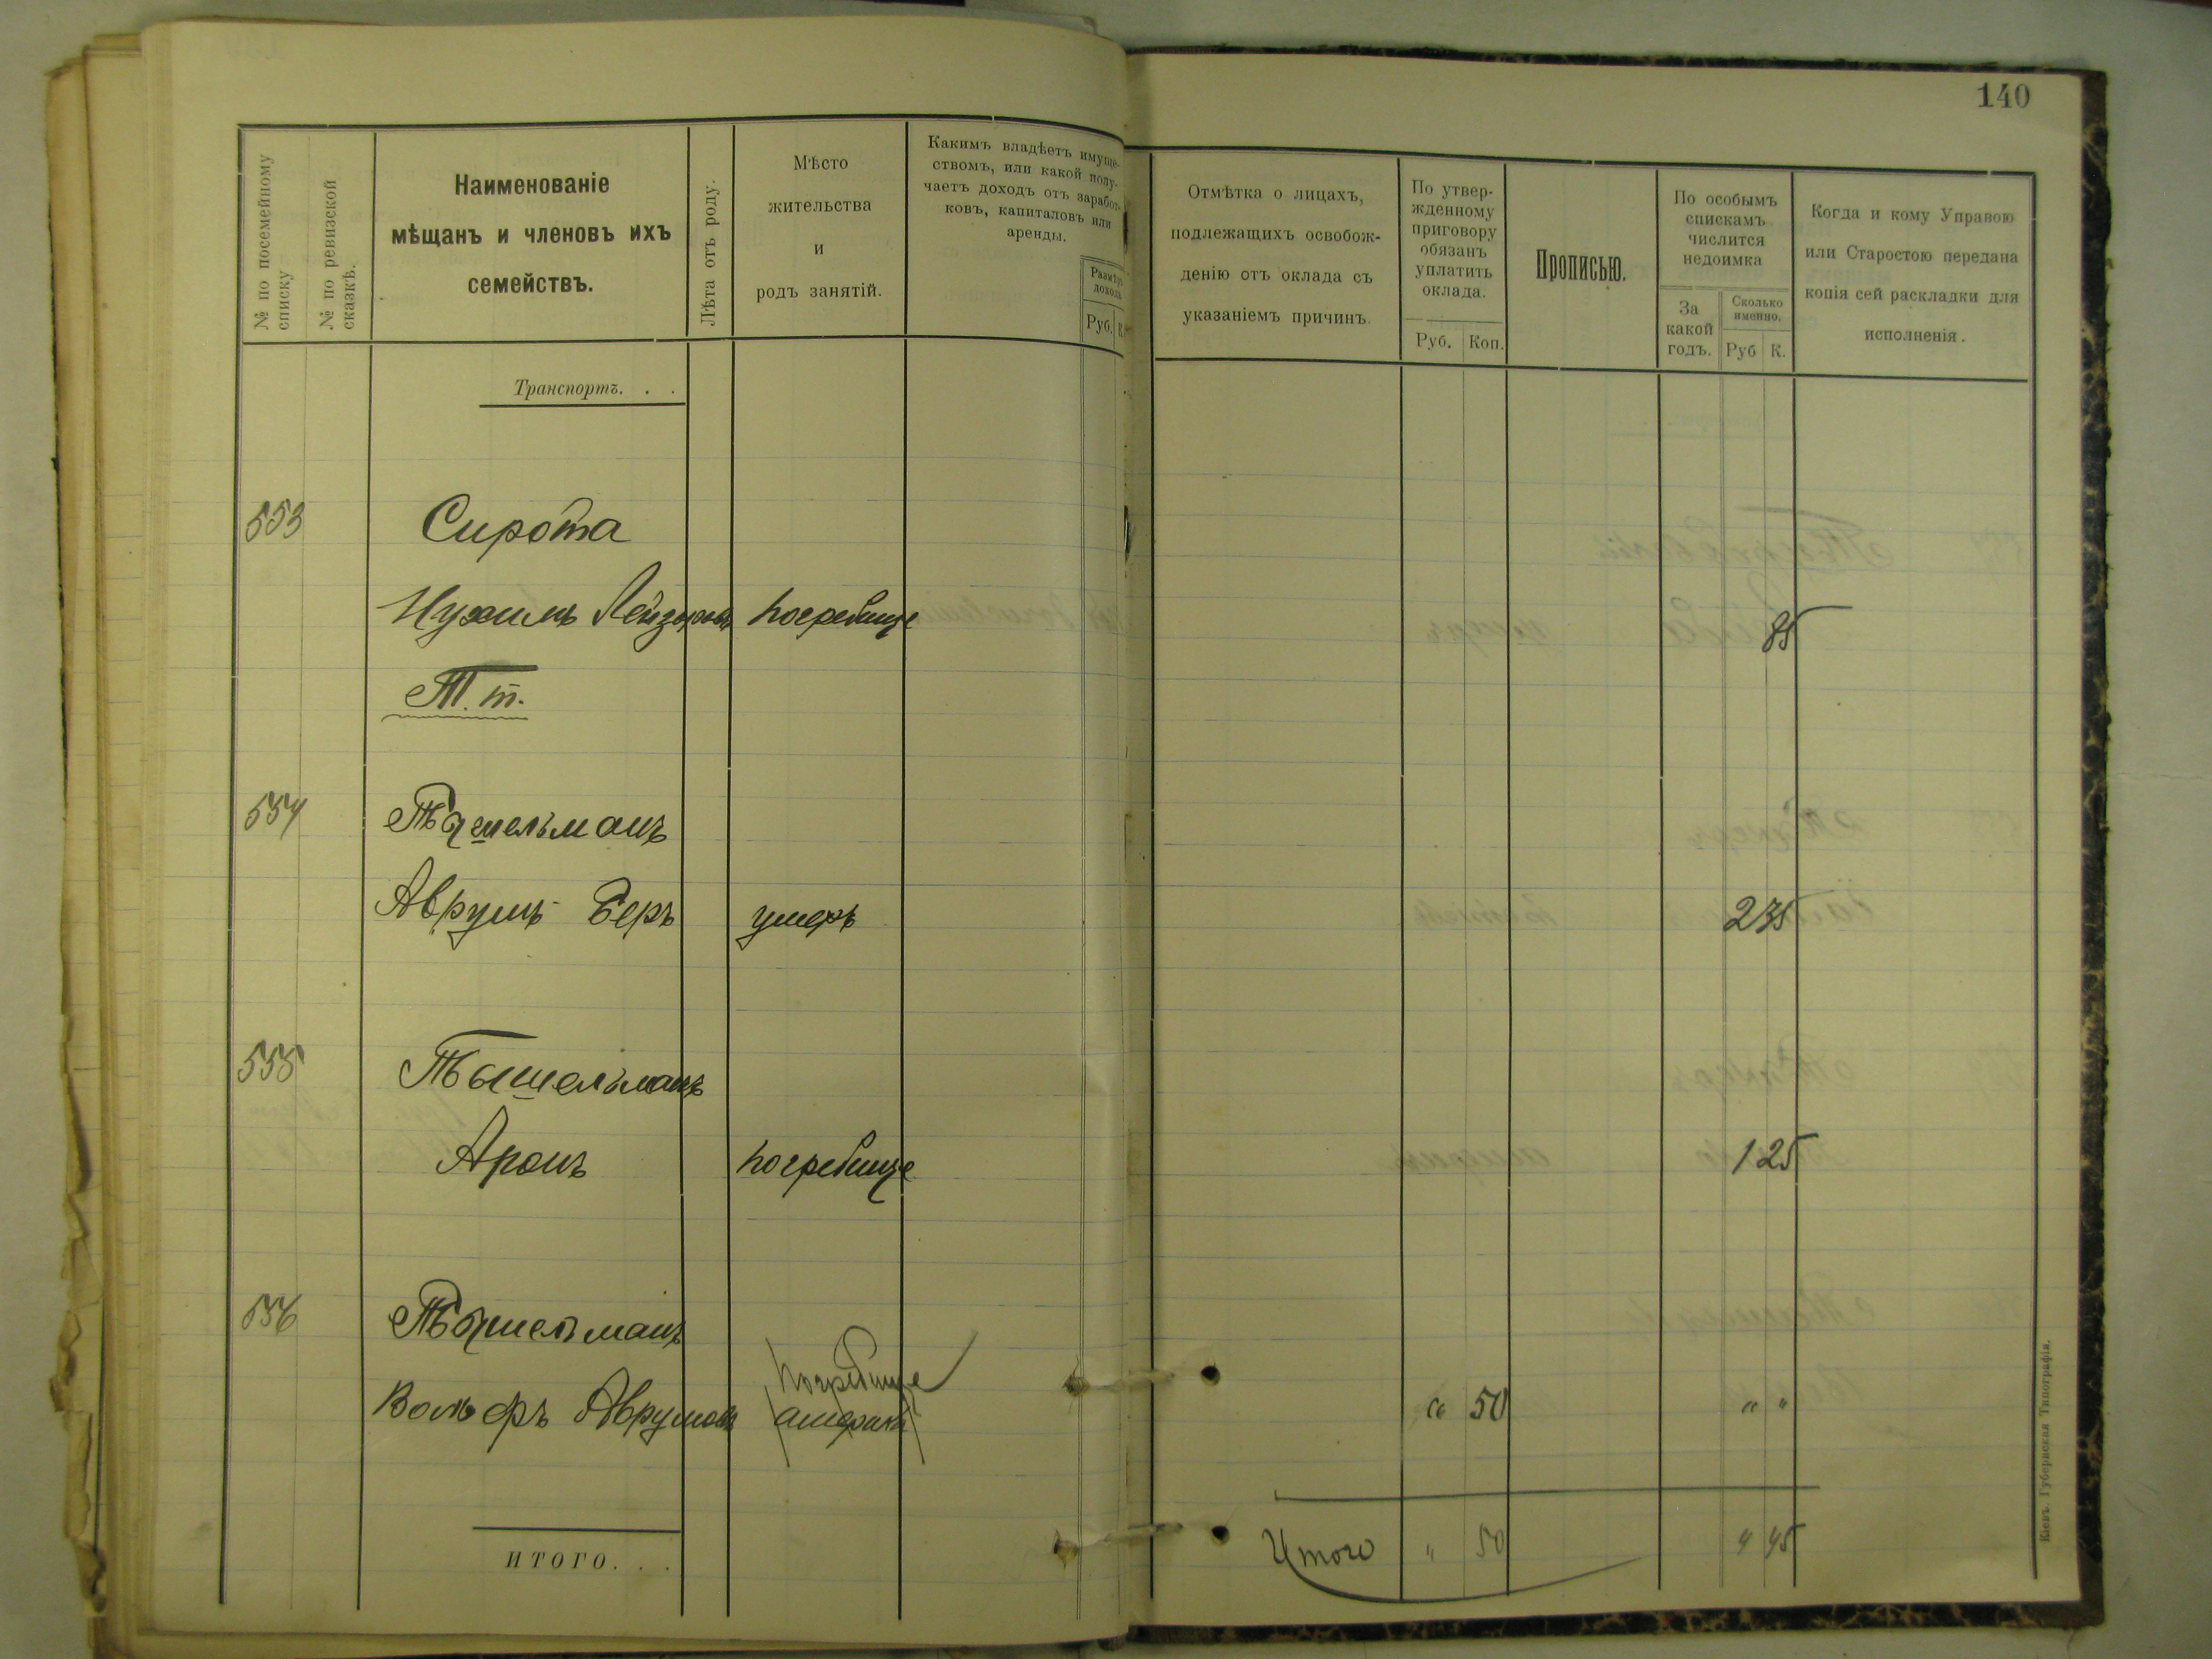 140
№ по посемейному списку
№ по ревизской сказкѣ.
Наименованіе
мѣщанъ и членовъ ихъ
семействъ.
Лѣта отъ роду.
Мѣсто
жительства
и
родъ занятій.
Какимъ владѣетъ имуще-
ствомъ, или какой полу-
чаетъ доходъ отъ заработ-
ковъ, капиталовъ или
аренды.
Размѣръ
дохода
Руб. К.
Отмѣтка о лицахъ,
подлежащихъ освобож-
денію отъ оклада съ
указаніемъ причинъ.
По утвер-
жденному
приговору
обязанъ
уплатить
оклада.
Руб. Коп.
Прописью.
По особымъ
спискамъ
числится
недоимка
За
какой
годъ.
Сколько
именно.
Руб К.
Когда и кому Управою
или Старостою передана
копія сей раскладки для
исполненія.
Транспортъ. . .
553 Сирота
Нухимъ Лейзоровъ Погребище 85
Т. т.
554 Тышельманъ
Аврумъ Беръ умеръ 2 35
555 Тышельманъ
Аронъ Погребище 1 25
556 Тышельманъ
Погребище
Вольфъ Аврумовъ америка " 50 " "
ИТОГО. . .
Итого " 50 4 45
Кіевъ. Губернская Типографія.